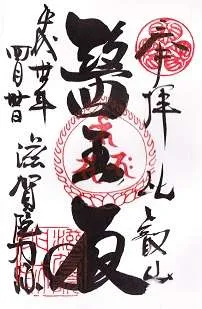 奉拝 比叡山
醫王殿
平成廿年
四月廿日
滋賀院門跡